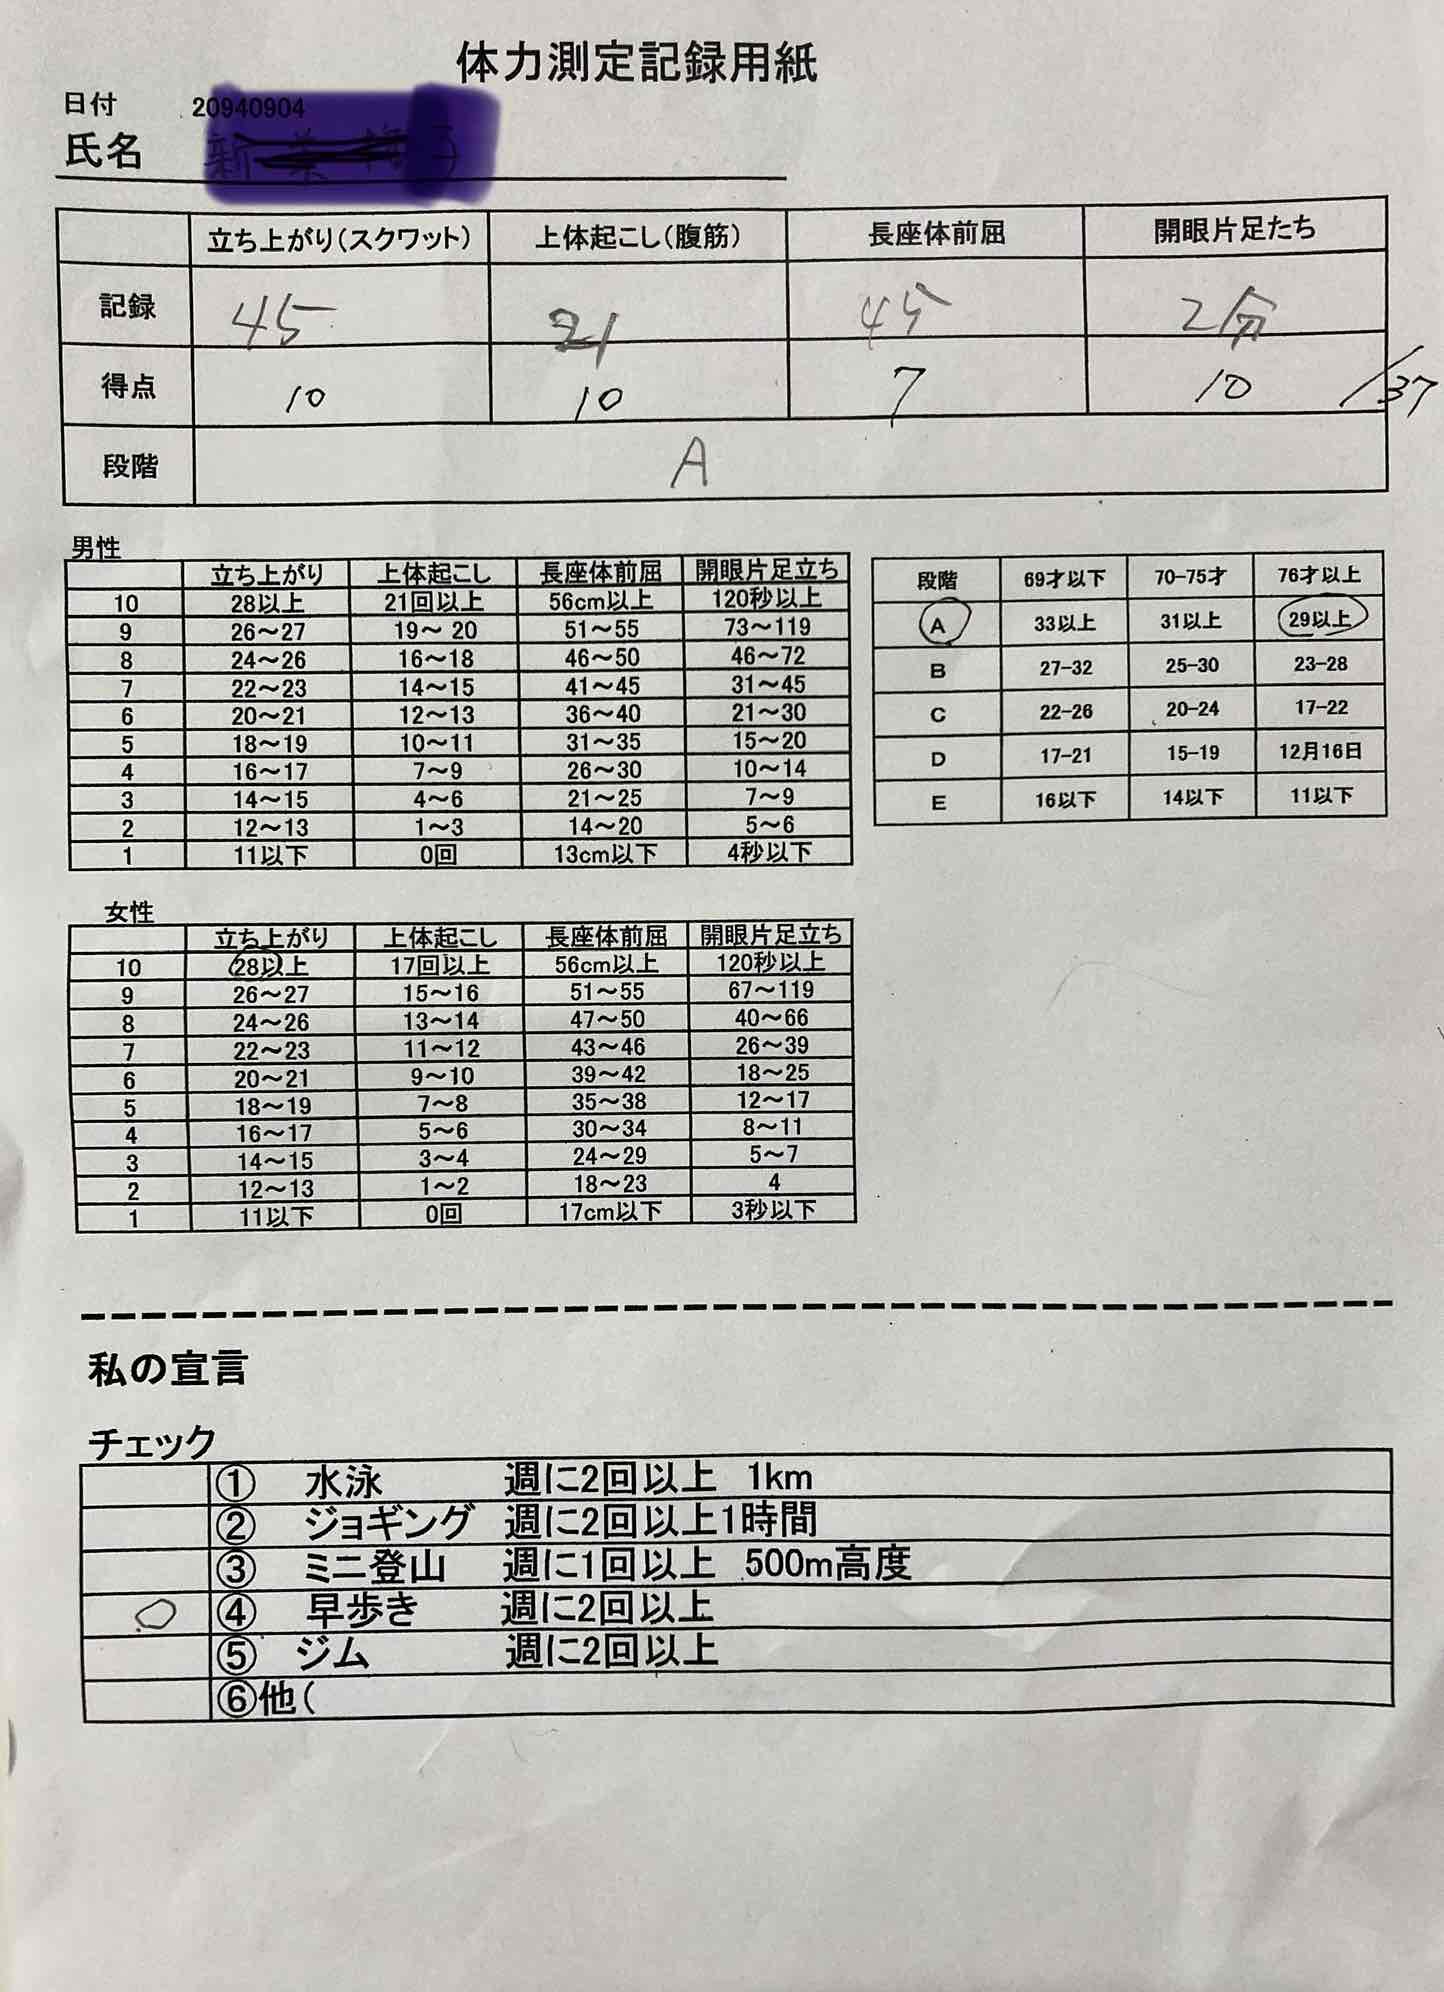 体力測定記録用紙
日付 20940904
氏名
立ち上がり(スクワット) 上体起こし(腹筋) 長座体前屈 開眼片足たち
記録 45 21 45 2分
得点 10 10 7 10 /37
段階 A
男性
立ち上がり 上体起こし 長座体前屈 開眼片足立ち
10 28以上 21回以上 56cm以上 120秒以上
9 26〜27 19〜20 51〜55 73〜119
8 24〜26 16〜18 46〜50 46〜72
7 22〜23 14〜15 41〜45 31〜45
6 20〜21 12〜13 36〜40 21〜30
5 18〜19 10〜11 31〜35 15〜20
4 16〜17 7〜9 26〜30 10〜14
3 14〜15 4〜6 21〜25 7〜9
2 12〜13 1〜3 14〜20 5〜6
1 11以下 0回 13cm以下 4秒以下
段階 69才以下 70-75才 76才以上
A 33以上 31以上 29以上
B 27-32 25-30 23-28
C 22-26 20-24 17-22
D 17-21 15-19 12月16日
E 16以下 14以下 11以下
女性
立ち上がり 上体起こし 長座体前屈 開眼片足立ち
10 28以上 17回以上 56cm以上 120秒以上
9 26〜27 15〜16 51〜55 67〜119
8 24〜26 13〜14 47〜50 40〜66
7 22〜23 11〜12 43〜46 26〜39
6 20〜21 9〜10 39〜42 18〜25
5 18〜19 7〜8 35〜38 12〜17
4 16〜17 5〜6 30〜34 8〜11
3 14〜15 3〜4 24〜29 5〜7
2 12〜13 1〜2 18〜23 4
1 11以下 0回 17cm以下 3秒以下
私の宣言
チェック
① 水泳 週に2回以上 1km
② ジョギング 週に2回以上1時間
③ ミニ登山 週に1回以上 500m高度
○ ④ 早歩き 週に2回以上
⑤ ジム 週に2回以上
⑥他(